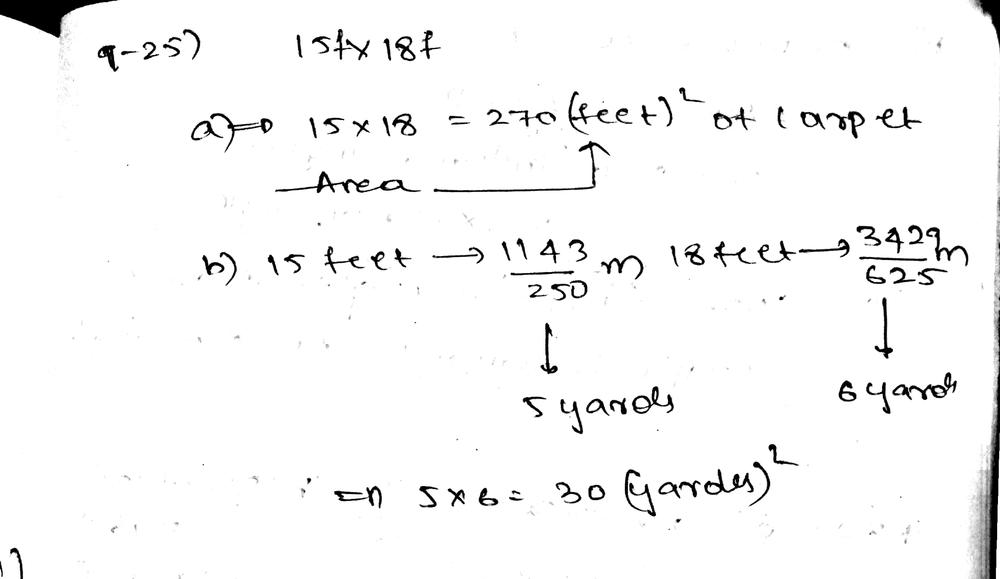 q-25) 15f x 18f
a) => 15 x 18 = 270 (feet)² of carpet
Area
b) 15 feet → 1143/250 m 18 feet → 3429/625 m
5 yards 6 yards
=> 5 x 6 = 30 (yardes)²